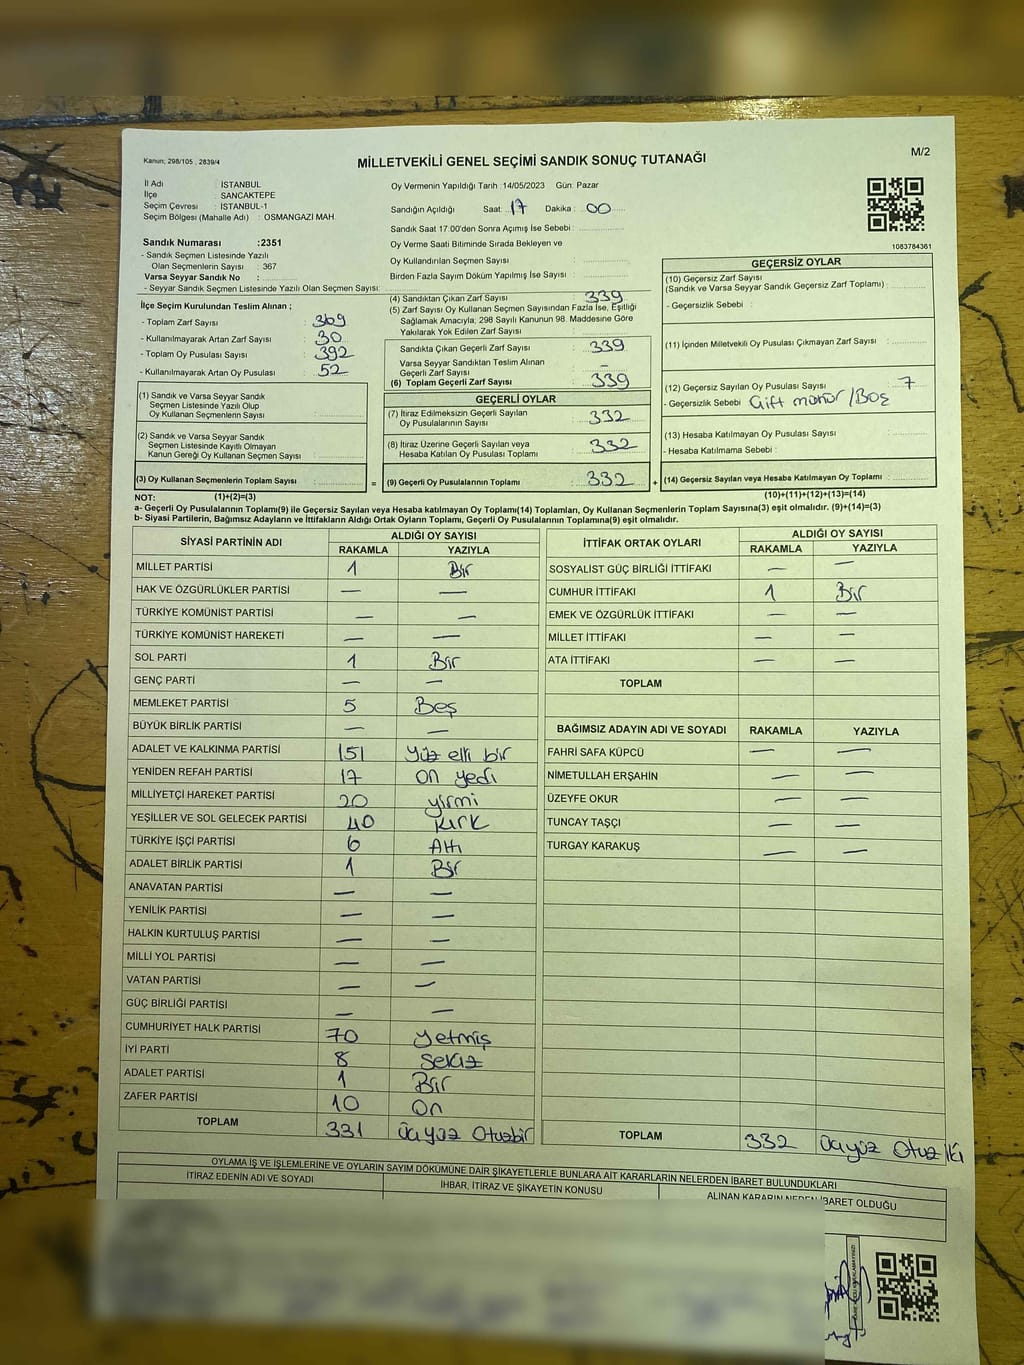 Kanun; 298/105 , 2839/4
MİLLETVEKİLİ GENEL SEÇİMİ SANDIK SONUÇ TUTANAĞI
M/2
İl Adı : İSTANBUL
İlçe : SANCAKTEPE
Seçim Çevresi : İSTANBUL-1
Seçim Bölgesi (Mahalle Adı) : OSMANGAZİ MAH.
Sandık Numarası :2351
- Sandık Seçmen Listesinde Yazılı
Olan Seçmenlerin Sayısı : 367
Varsa Seyyar Sandık No :
- Seyyar Sandık Seçmen Listesinde Yazılı Olan Seçmen Sayısı:
Oy Vermenin Yapıldığı Tarih :14/05/2023 Gün: Pazar
Sandığın Açıldığı Saat: 17 Dakika : 00
Sandık Saat 17:00'den Sonra Açılmış İse Sebebi :
Oy Verme Saati Bitiminde Sırada Bekleyen ve
Oy Kullandırılan Seçmen Sayısı :
Birden Fazla Sayım Döküm Yapılmış İse Sayısı :
1083784361
İlçe Seçim Kurulundan Teslim Alınan ;
- Toplam Zarf Sayısı : 369
- Kullanılmayarak Artan Zarf Sayısı : 30
- Toplam Oy Pusulası Sayısı : 392
- Kullanılmayarak Artan Oy Pusulası : 52
(1) Sandık ve Varsa Seyyar Sandık
Seçmen Listesinde Yazılı Olup
Oy Kullanan Seçmenlerin Sayısı :
(2) Sandık ve Varsa Seyyar Sandık
Seçmen Listesinde Kayıtlı Olmayan
Kanun Gereği Oy Kullanan Seçmen Sayısı :
(3) Oy Kullanan Seçmenlerin Toplam Sayısı : =
(4) Sandıktan Çıkan Zarf Sayısı : 339
(5) Zarf Sayısı Oy Kullanan Seçmen Sayısından Fazla İse, Eşitliği
Sağlamak Amacıyla; 298 Sayılı Kanunun 98. Maddesine Göre
Yakılarak Yok Edilen Zarf Sayısı :
Sandıkta Çıkan Geçerli Zarf Sayısı : 339
Varsa Seyyar Sandıktan Teslim Alınan
Geçerli Zarf Sayısı : -
(6) Toplam Geçerli Zarf Sayısı : 339
GEÇERLİ OYLAR
(7) İtiraz Edilmeksizin Geçerli Sayılan
Oy Pusulalarının Sayısı : 332
(8) İtiraz Üzerine Geçerli Sayılan veya
Hesaba Katılan Oy Pusulası Toplamı : 332
(9) Geçerli Oy Pusulalarının Toplamı : 332 +
GEÇERSİZ OYLAR
(10) Geçersiz Zarf Sayısı
(Sandık ve Varsa Seyyar Sandık Geçersiz Zarf Toplamı) :
- Geçersizlik Sebebi :
(11) İçinden Milletvekili Oy Pusulası Çıkmayan Zarf Sayısı :
(12) Geçersiz Sayılan Oy Pusulası Sayısı : 7
- Geçersizlik Sebebi : Çift mühür / Boş
(13) Hesaba Katılmayan Oy Pusulası Sayısı :
- Hesaba Katılmama Sebebi :
(14) Geçersiz Sayılan veya Hesaba Katılmayan Oy Toplamı :
NOT: (1)+(2)=(3) (10)+(11)+(12)+(13)=(14)
a- Geçerli Oy Pusulalarının Toplamı(9) ile Geçersiz Sayılan veya Hesaba katılmayan Oy Toplamı(14) Toplamları, Oy Kullanan Seçmenlerin Toplam Sayısına(3) eşit olmalıdır. (9)+(14)=(3)
b- Siyasi Partilerin, Bağımsız Adayların ve İttifakların Aldığı Ortak Oyların Toplamı, Geçerli Oy Pusulalarının Toplamına(9) eşit olmalıdır.
SİYASİ PARTİNİN ADI ALDIĞI OY SAYISI
RAKAMLA YAZIYLA
MİLLET PARTİSİ 1 Bir
HAK VE ÖZGÜRLÜKLER PARTİSİ — —
TÜRKİYE KOMÜNİST PARTİSİ — —
TÜRKİYE KOMÜNİST HAREKETİ — —
SOL PARTİ 1 Bir
GENÇ PARTİ — —
MEMLEKET PARTİSİ 5 Beş
BÜYÜK BİRLİK PARTİSİ — —
ADALET VE KALKINMA PARTİSİ 151 Yüz elli bir
YENİDEN REFAH PARTİSİ 17 on yedi
MİLLİYETÇİ HAREKET PARTİSİ 20 yirmi
YEŞİLLER VE SOL GELECEK PARTİSİ 40 Kırk
TÜRKİYE İŞÇİ PARTİSİ 6 Altı
ADALET BİRLİK PARTİSİ 1 Bir
ANAVATAN PARTİSİ — —
YENİLİK PARTİSİ — —
HALKIN KURTULUŞ PARTİSİ — —
MİLLİ YOL PARTİSİ — —
VATAN PARTİSİ — —
GÜÇ BİRLİĞİ PARTİSİ — —
CUMHURİYET HALK PARTİSİ 70 Yetmiş
İYİ PARTİ 8 Sekiz
ADALET PARTİSİ 1 Bir
ZAFER PARTİSİ 10 On
TOPLAM 331 Üçyüz Otuzbir
İTTİFAK ORTAK OYLARI ALDIĞI OY SAYISI
RAKAMLA YAZIYLA
SOSYALİST GÜÇ BİRLİĞİ İTTİFAKI — —
CUMHUR İTTİFAKI 1 Bir
EMEK VE ÖZGÜRLÜK İTTİFAKI — —
MİLLET İTTİFAKI — —
ATA İTTİFAKI — —
TOPLAM
BAĞIMSIZ ADAYIN ADI VE SOYADI RAKAMLA YAZIYLA
FAHRİ SAFA KÜPCÜ — —
NİMETULLAH ERŞAHİN — —
ÜZEYFE OKUR — —
TUNCAY TAŞÇI — —
TURGAY KARAKUŞ — —
TOPLAM 332 Üçyüz Otuz İki
OYLAMA İŞ VE İŞLEMLERİNE VE OYLARIN SAYIM DÖKÜMÜNE DAİR ŞİKAYETLERLE BUNLARA AİT KARARLARIN NELERDEN İBARET BULUNDUKLARI
İTİRAZ EDENİN ADI VE SOYADI İHBAR, İTİRAZ VE ŞİKAYETİN KONUSU ALINAN KARARIN NEDEN İBARET OLDUĞU